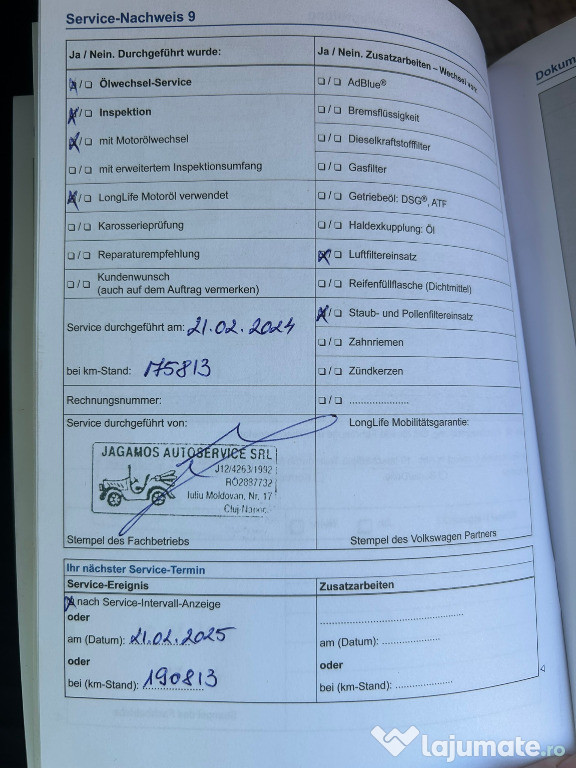 Service-Nachweis 9
Dokum
Ja / Nein. Durchgeführt wurde:
Ja / Nein. Zusatzarbeiten – Wechsel von:
Ölwechsel-Service
AdBlue®
Inspektion
Bremsflüssigkeit
mit Motorölwechsel
Dieselkraftstofffilter
mit erweitertem Inspektionsumfang
Gasfilter
LongLife Motoröl verwendet
Getriebeöl: DSG®, ATF
Karosserieprüfung
Haldexkupplung: Öl
Reparaturempfehlung
Luftfiltereinsatz
Kundenwunsch
(auch auf dem Auftrag vermerken)
Reifenfüllflasche (Dichtmittel)
Service durchgeführt am: 21.02.2024
Staub- und Pollenfiltereinsatz
Zahnriemen
bei km-Stand: 175813
Zündkerzen
Rechnungsnummer:
Service durchgeführt von:
LongLife Mobilitätsgarantie:
JAGAMOS AUTOSERVICE SRL
J12/4263/1992
RO2887732
Iuliu Moldovan, Nr. 17
Cluj Napoc
Stempel des Fachbetriebs
Stempel des Volkswagen Partners
Ihr nächster Service-Termin
Service-Ereignis
Zusatzarbeiten
nach Service-Intervall-Anzeige
oder
am (Datum): 21.02.2025
am (Datum):
oder
oder
bei (km-Stand): 190813
bei (km-Stand):
lajumate.ro